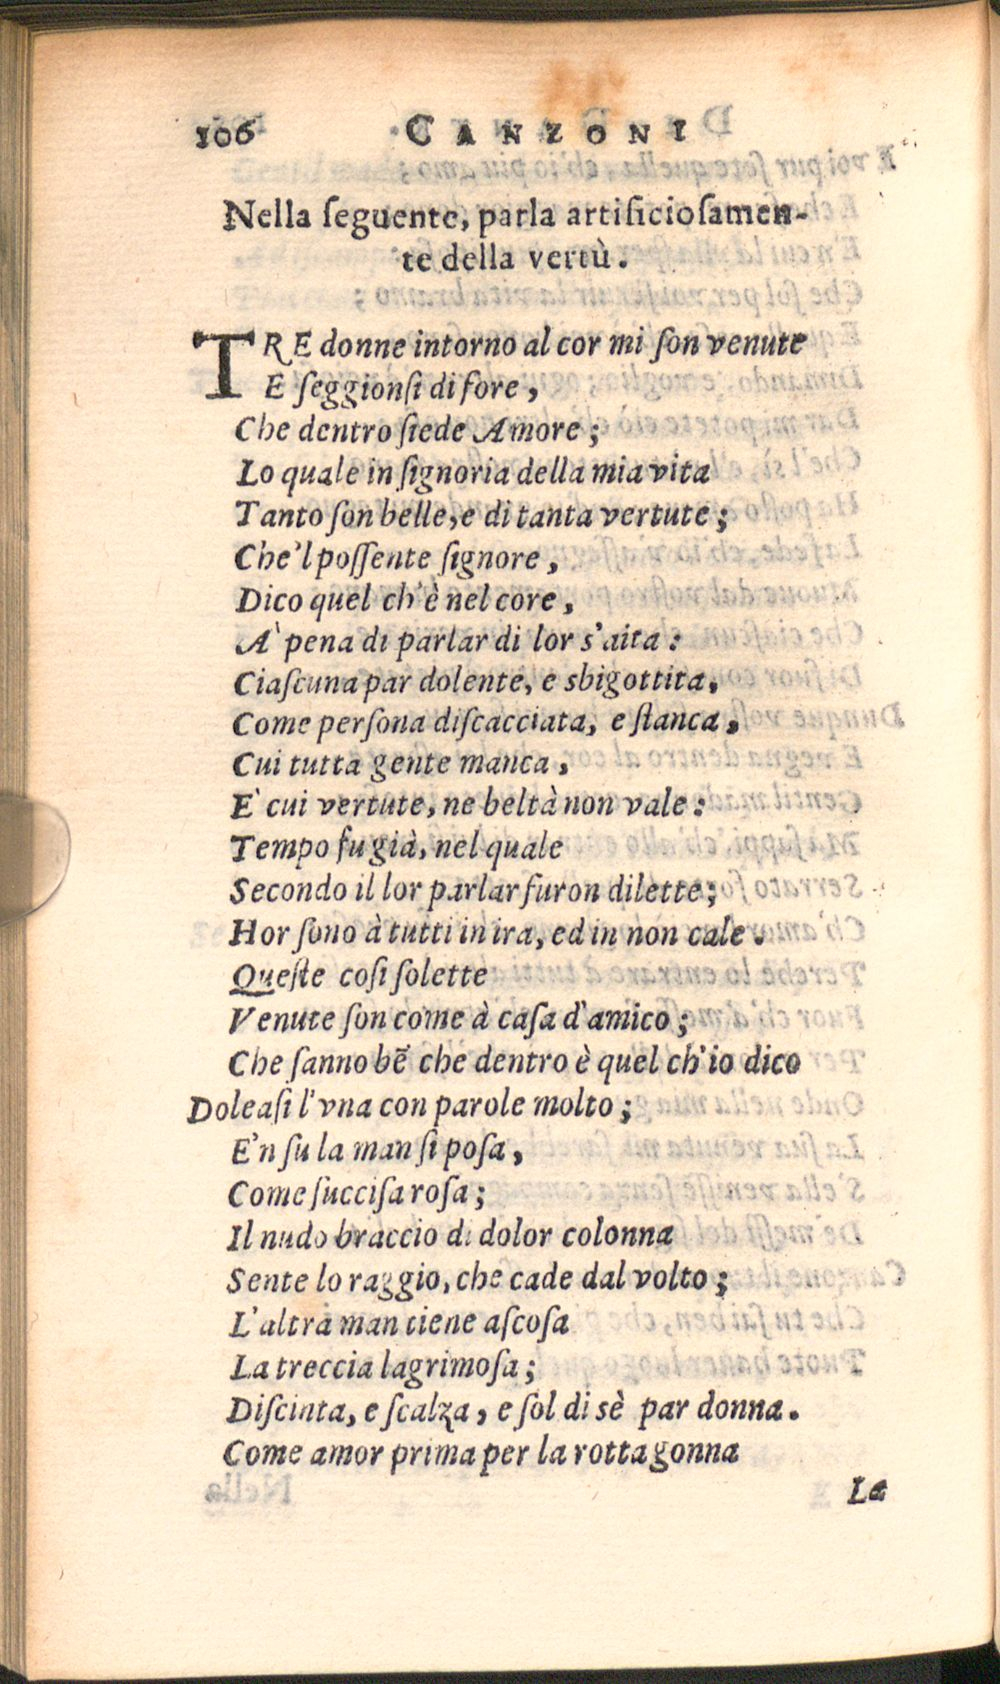 106 CANZONI
Nella ſeguente, parla artificioſamen-
te della vertù.
TRE donne intorno al cor mi ſon venute
E ſeggionſi di fore,
Che dentro ſiede Amore;
Lo quale in ſignoria della mia vita
Tanto ſon belle, e di tanta vertute;
Che'l poſſente ſignore,
Dico quel ch'è nel core,
A' pena di parlar di lor s'aita:
Ciaſcuna par dolente, e sbigottita,
Come perſona diſcacciata, e ſtanca,
Cui tutta gente manca,
E' cui vertute, ne beltà non vale:
Tempo fu già, nel quale
Secondo il lor parlar furon dilette;
Hor ſono à tutti in ira, ed in non cale.
Queſte coſi ſolette
Venute ſon come à caſa d'amico;
Che ſanno bē che dentro è quel ch'io dico
Doleaſi l'vna con parole molto;
E'n ſu la man ſi poſa,
Come ſucciſa roſa;
Il nudo braccio di dolor colonna
Sente lo raggio, che cade dal volto;
L'altra man tiene aſcoſa
La treccia lagrimoſa;
Diſcinta, e ſcalza, e ſol di sè par donna.
Come amor prima per la rotta gonna
La